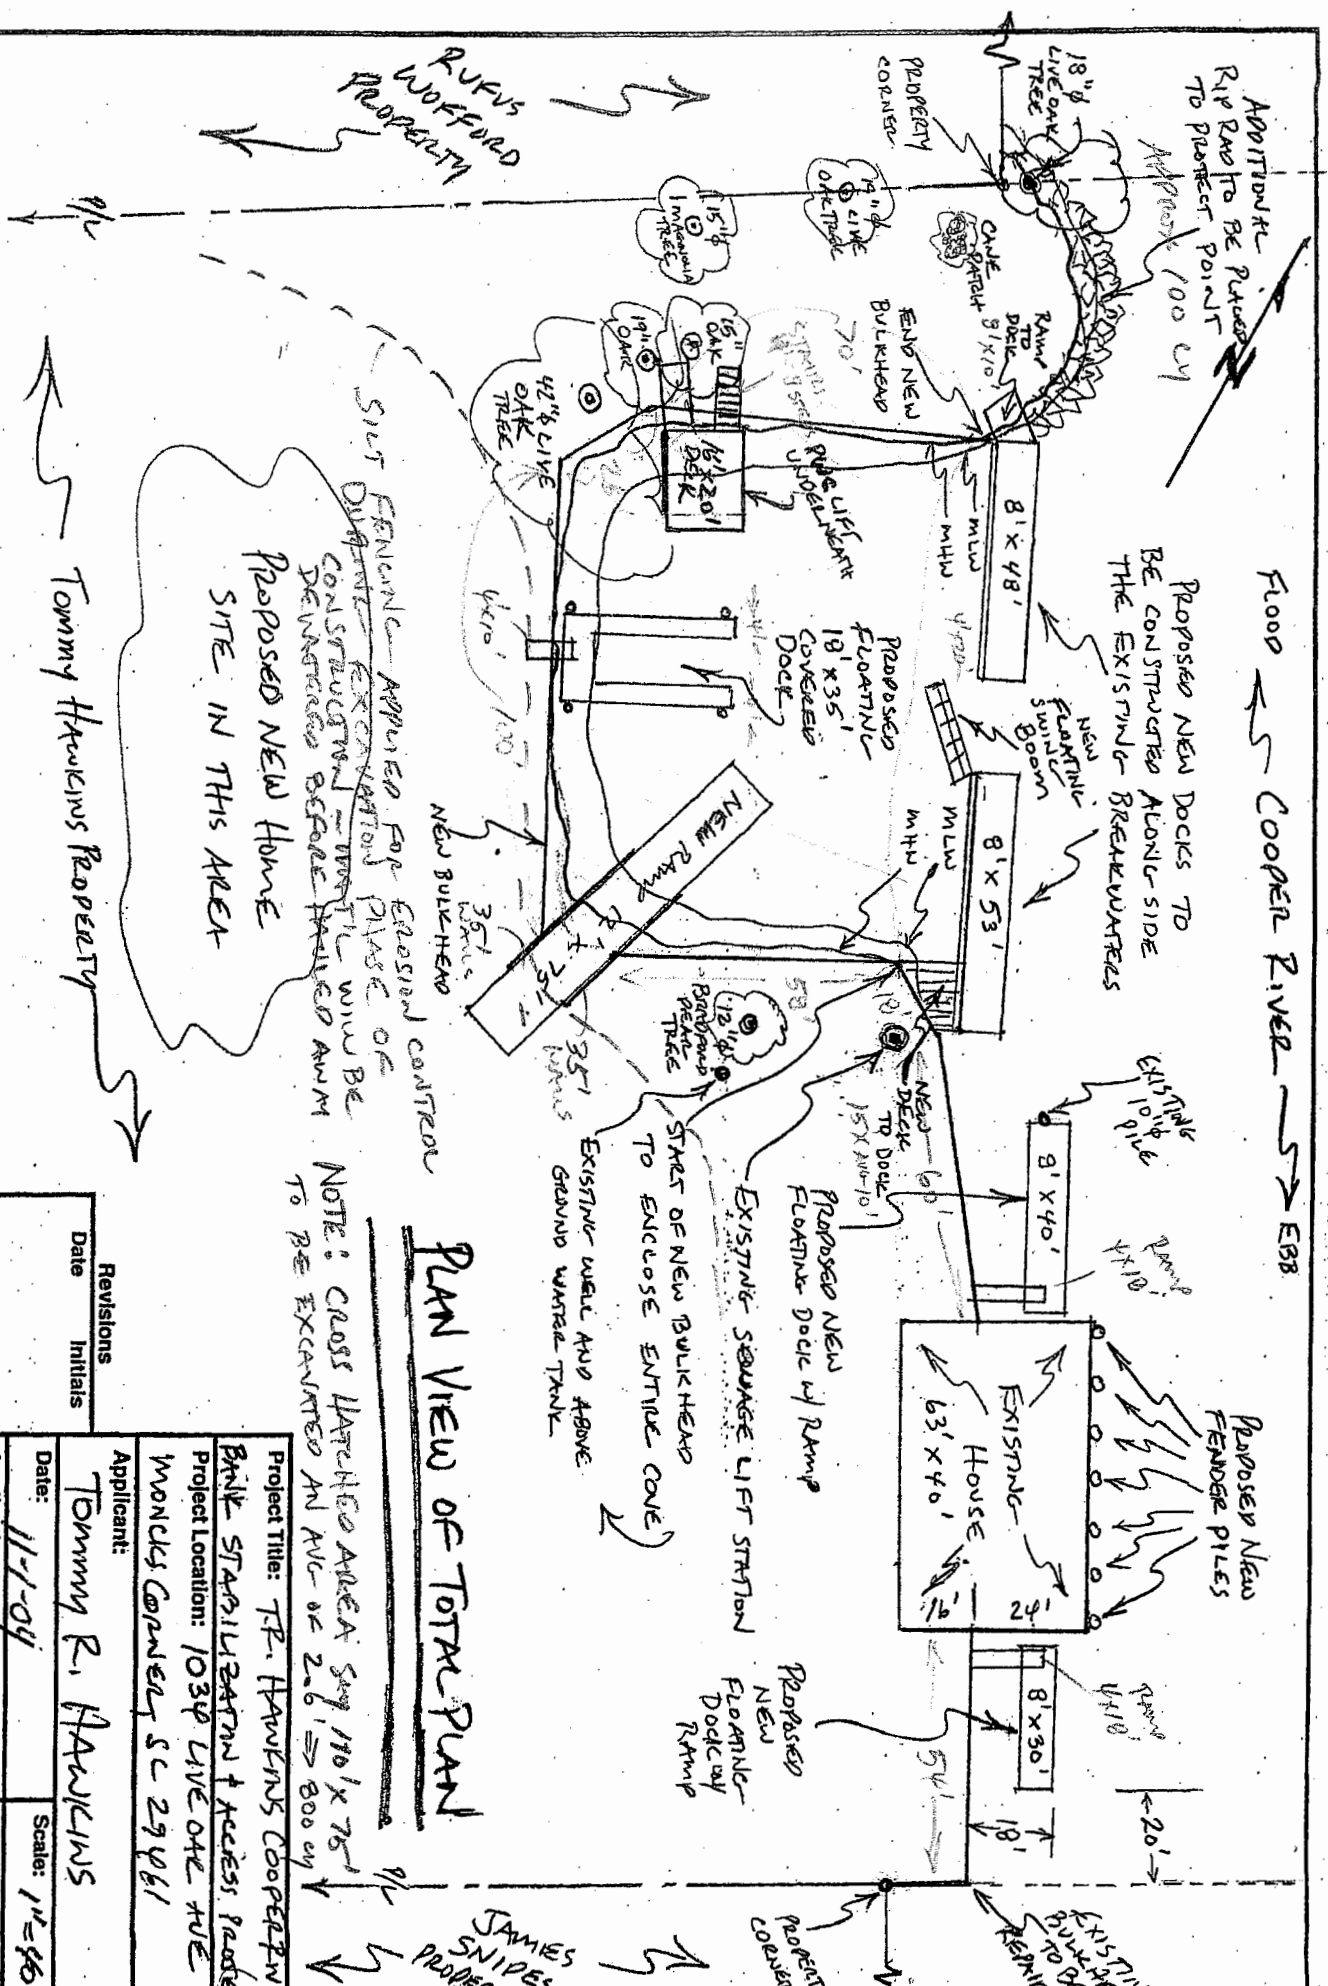 ADDITIONAL
RIP RAP TO BE PLACED
TO PROTECT POINT
APPROX 100 CY
FLOOD
COOPER RIVER
EBB
18"ϕ
LIVE OAK
TREE
PROPERTY
CORNER
RUFUS
WOFFORD
PROPERTY
P/L
14"ϕ
LIVE
OAK TREE
15"ϕ
MAGNOLIA
TREE
CANE
PATCH
RAMP
TO
DOCK
8'X10'
END NEW
BULKHEAD
70'
STAIRS
15"
OAK
19"
OAK
42"ϕ LIVE
OAK
TREE
16'X20'
DECK
UNDERNEATH
MLW
MHW
8' X 48'
PROPOSED NEW DOCKS TO
BE CONSTRUCTED ALONG SIDE
THE EXISTING BREAKWATERS
NEW
FLOATING
SWING
BOOM
8' X 53'
MLW
MHW
PROPOSED
FLOATING
18' X 35'
COVERED
DOCK
4X10'
100'
NEW RAMP
NEW BULKHEAD
35'
WALLS
35'
WALLS
58'
12"ϕ
BRADFORD
PEAR
TREE
18'
NEW
DECK
TO DOCK
15 X AVG 10'
60'
EXISTING
10"ϕ
PILE
8' X 40'
RAMP
4X10'
PROPOSED NEW
FLOATING DOCK W/ RAMP
EXISTING SEWAGE LIFT STATION
START OF NEW BULKHEAD
TO ENCLOSE ENTIRE COVE
EXISTING WELL AND ABOVE
GROUND WATER TANK
PROPOSED NEW
FENDER PILES
EXISTING
HOUSE
63' X 40'
16'
24'
8' X 30'
RAMP
4X10'
20'
18'
54'
PROPOSED
NEW
FLOATING
DOCK W/
RAMP
PROPERTY
CORNER
EXISTING
BULKHEAD
TO BE
REPAIR
P/L
JAMIES
SNIPES
PROPER
SILT FENCING APPLIED FOR EROSION CONTROL
DURING EXCAVATION PHASE OF
CONSTRUCTION - MAT'L WILL BE
DEWATERED BEFORE HAULED AWAY
PROPOSED NEW HOME
SITE IN THIS AREA
TOMMY HAWKINS PROPERTY
PLAN VIEW OF TOTAL PLAN
NOTE: CROSS HATCHED AREA SAY 110' X 75'
TO BE EXCAVATED AN AVG OF 2.6' => 800 CY
Revisions
Date Initials
Project Title: T.R. HAWKINS COOPER
BANK STABILIZATION & ACCESS
Project Location: 1034 LIVE OAK AVE
MONCKS CORNER, SC 29461
Applicant:
TOMMY R. HAWKINS
Date: 11-1-04
Scale: 1"=